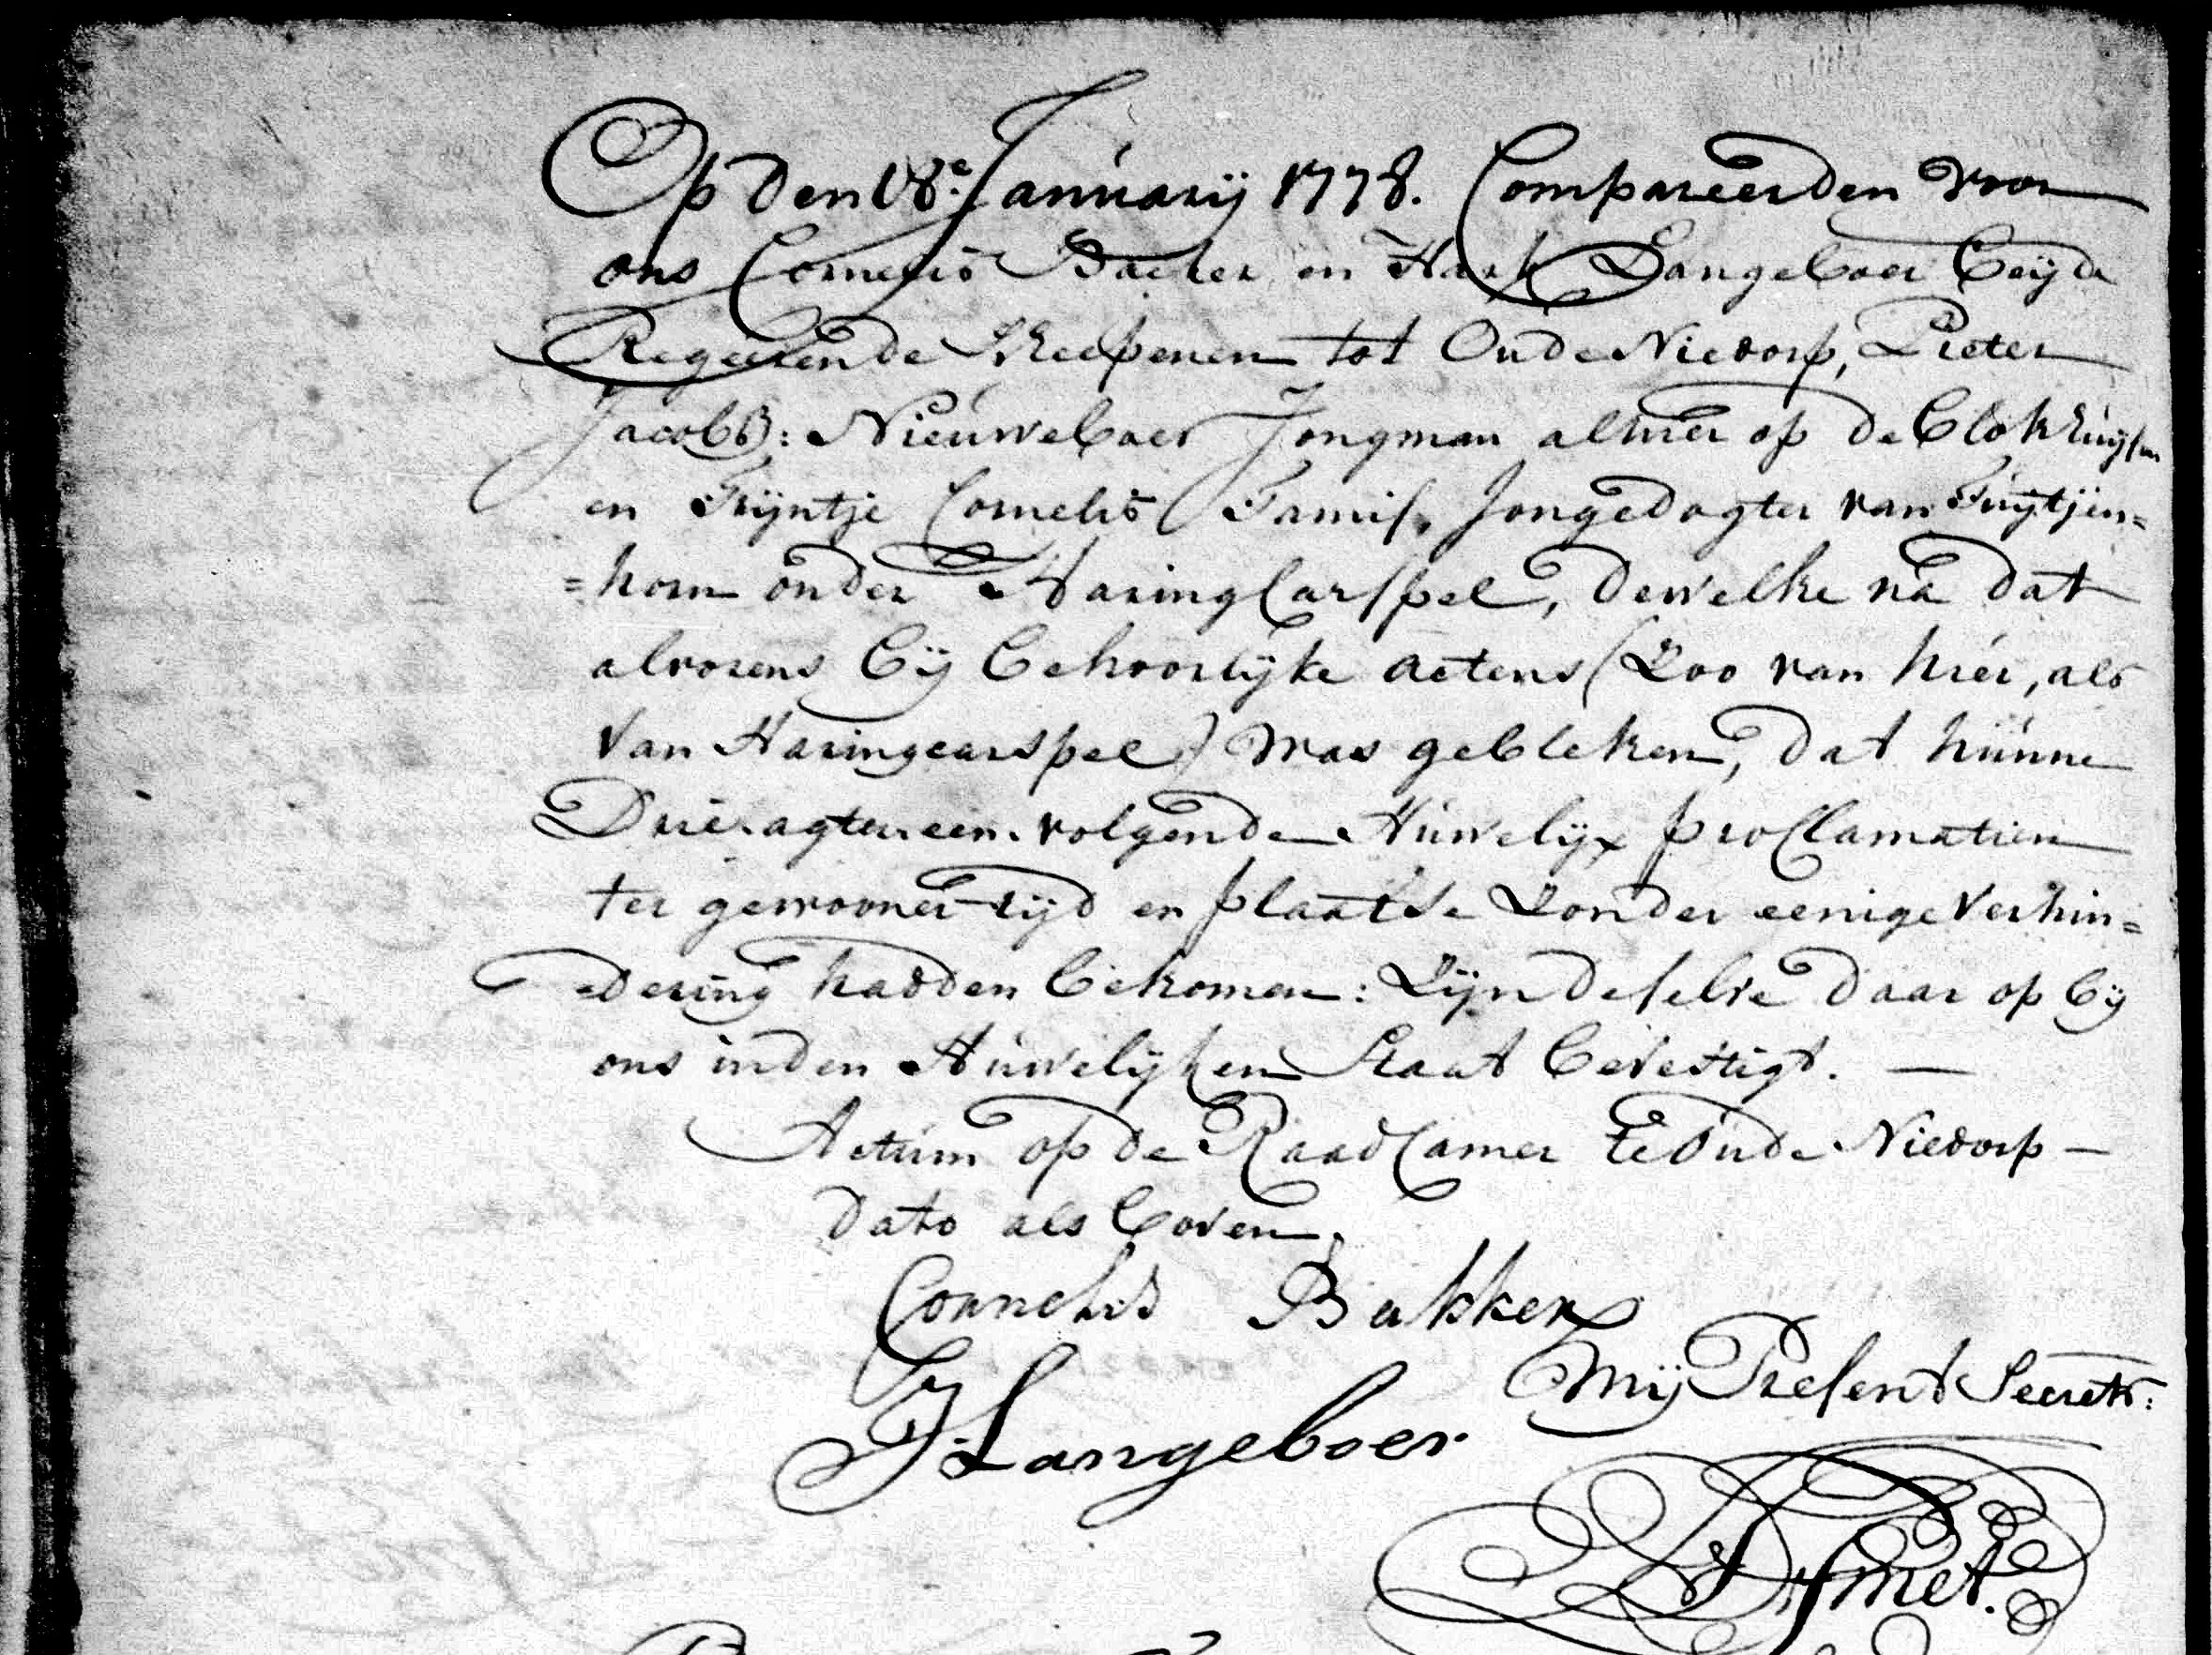 Op den 18e. Januarij 1778. Compareerden voor
ons Cornelis Backer en Hark Langeboer beijde
Regeerende Scheepenen tot Oude Niedorp, Pieter
Jacobsz: Nieuweboer Jongman alhier op de
en Trijntje Cornelis Jongedogter van Tuijtjen=
=horn onder Haringcarspel, dewelke na dat
alvorens bij behoorlijke actens (Zoo van hier, als
van Haringcarspel) was gebleken, dat hunne
Drie agter een volgende Huwelijx proclamatien
ter gewooner tijd en plaatse Zonder eenige verhin=
=dering hadden bekomen: Zijn deselve daar op bij
ons in den Huwelijken Staat bevestigt. —
Actum op de Raadcamer te Oude Niedorp —
dato als boven.
Cornelis Bakker
Mij Present Secrets:
H Langeboer